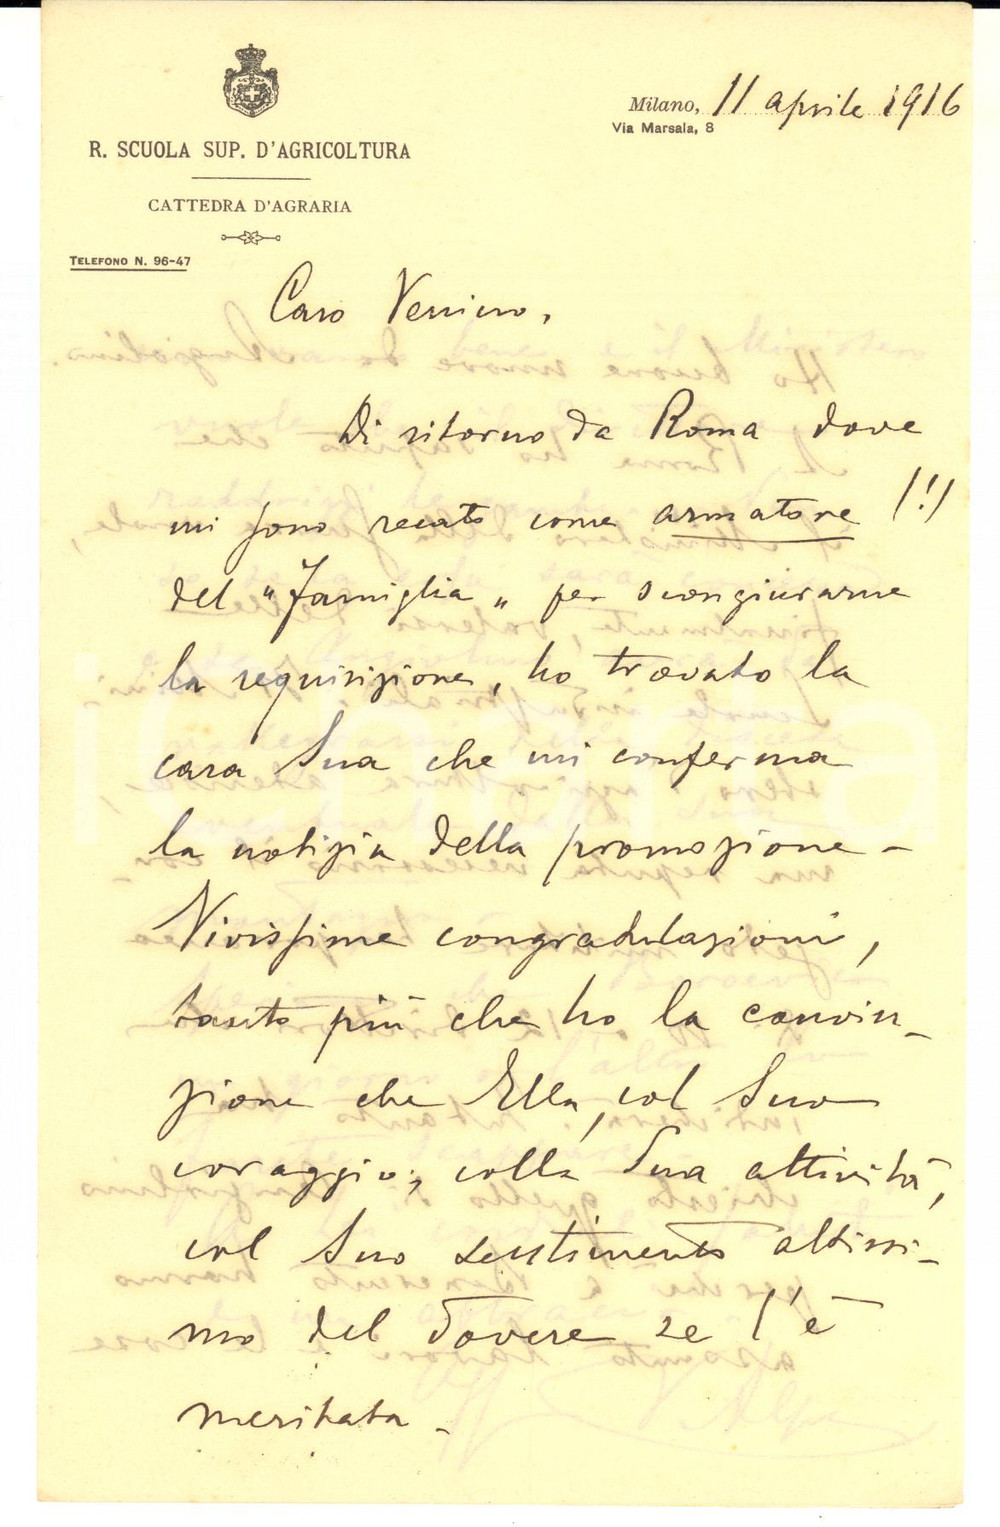 R. SCUOLA SUP. D'AGRICOLTURA
CATTEDRA D'AGRARIA
TELEFONO N. 96-47
Milano, 11 aprile 1916
Via Marsala, 8
Caro
Di ritorno da Roma dove
mi sono recato come armatore (!)
del "Famiglia" per scongiurarne
la requisizione, ho trovato la
cara Sua che mi conferma
la notizia della promozione -
Vivissime congradulazioni,
tanto più che ho la convin-
zione che Ella, col Suo
coraggio, colla Sua attività,
col Suo sentimento altissi-
mo del dovere se l'è
meritata.